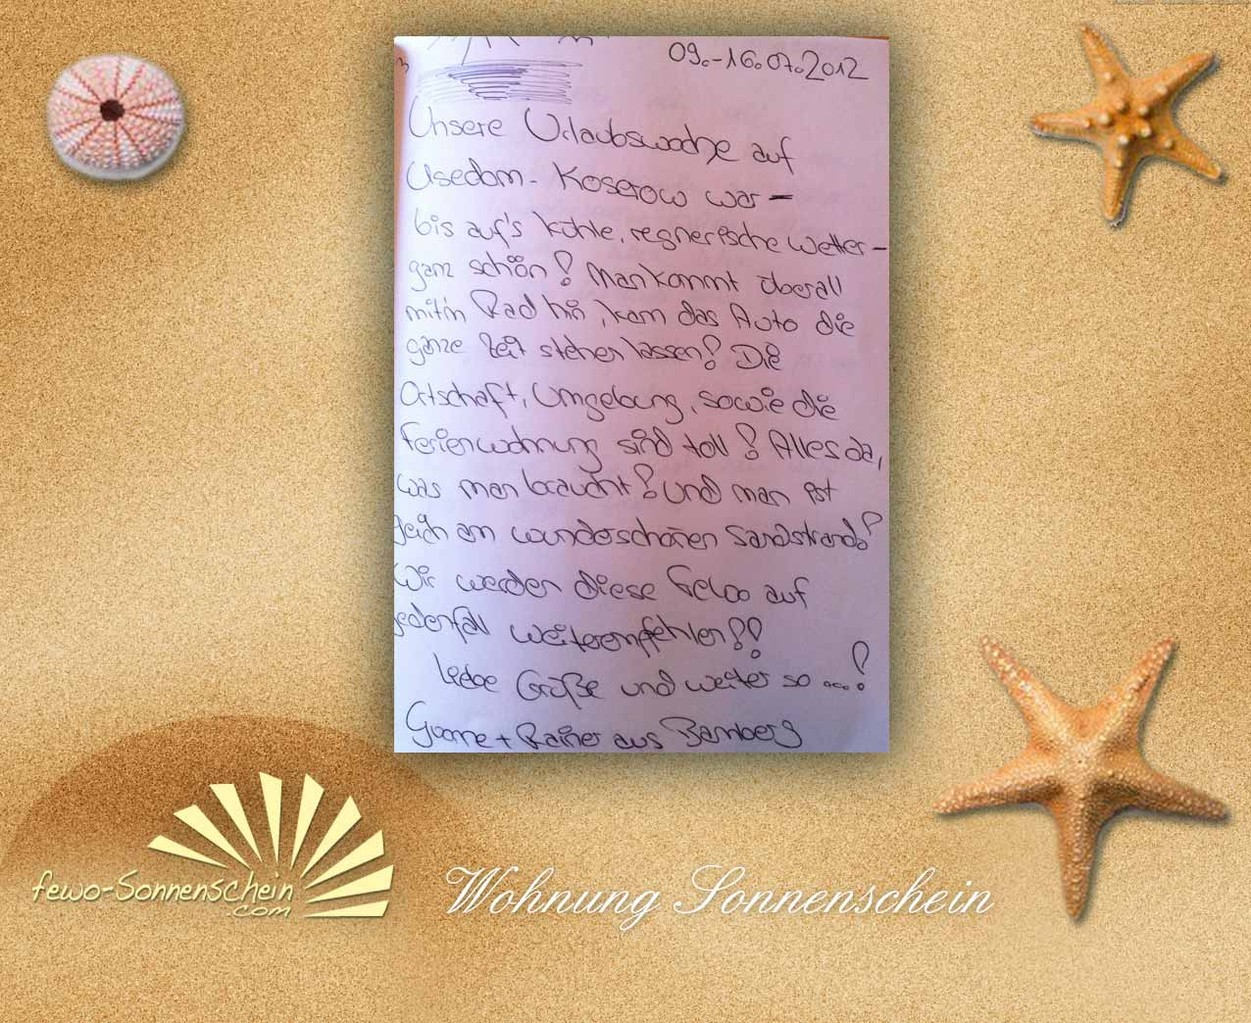 09.-16.07.2012
Unsere Urlaubswoche auf
Usedom - Koserow war -
bis auf's kühle, regnerische Wetter -
ganz schön! Man kommt überall
mit'n Rad hin, kam das Auto die
ganze Zeit stehen lassen! Die
Ortschaft, Umgebung, sowie die
Ferienwohnung sind toll! Alles da,
was man braucht! Und man ist
gleich am wunderschönen Sandstrand!
Wir werden diese FeWo auf
jedenfall weiterempfehlen!!
Liebe Grüße und weiter so ...!
+ Rainer aus Bamberg
fewo-Sonnenschein
.com
Wohnung Sonnenschein